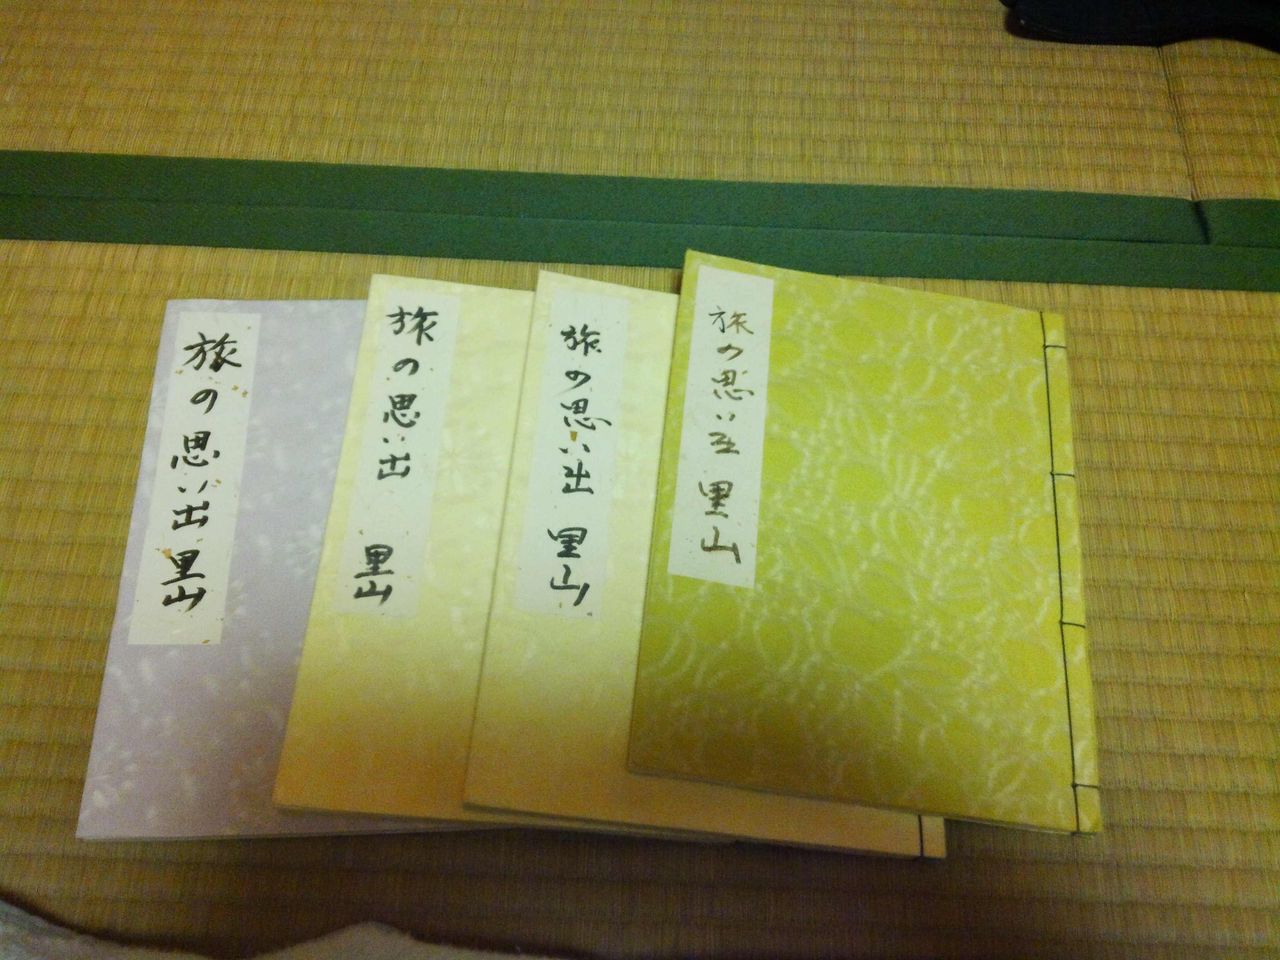 旅の思い出 里山
旅の思い出 里山
旅の思い出 里山
旅の思い出 里山